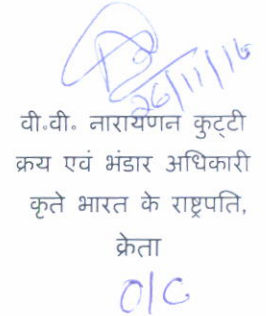 26/11/16
वी.वी. नारायणन कुट्टी
क्रय एवं भंडार अधिकारी
कृते भारत के राष्ट्रपति,
क्रेता
O/C